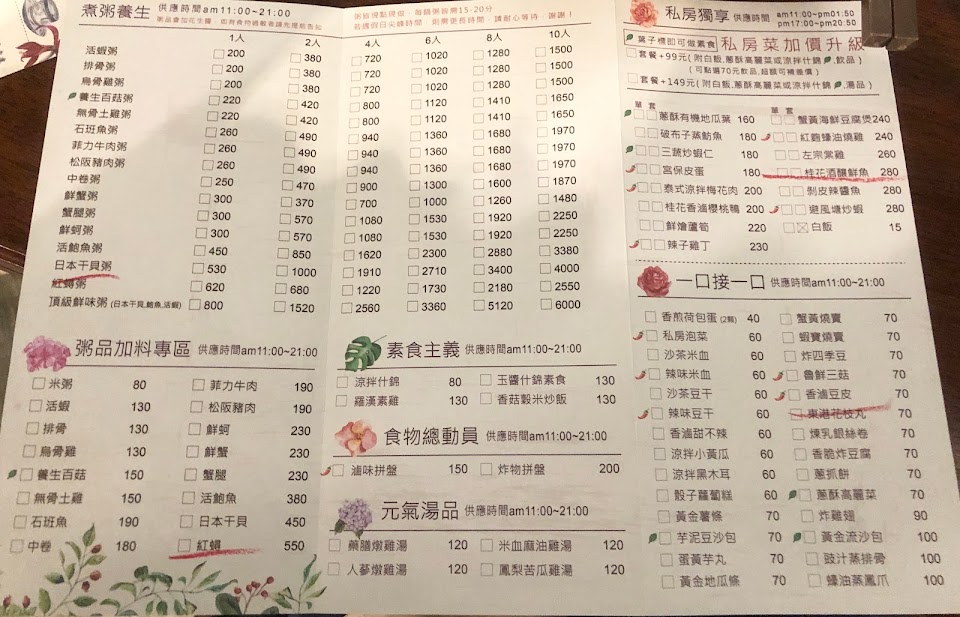 煮粥養生 供應時間am11:00~21:00
粥品會加花生醬，如有食物過敏者請先提前告知
粥皆現點現做，每鍋粥皆需15-20分
若遇假日尖峰時間，則需更長時間，請耐心等待，謝謝！
1人 2人 4人 6人 8人 10人
活蝦粥 200 380 720 1020 1280 1500
排骨粥 200 380 720 1020 1280 1500
烏骨雞粥 200 380 720 1020 1280 1500
養生百菇粥 220 420 800 1120 1410 1650
無骨土雞粥 220 420 800 1120 1410 1650
石班魚粥 260 490 940 1360 1680 1970
菲力牛肉粥 260 490 940 1360 1680 1970
松阪豬肉粥 260 490 940 1360 1680 1970
中卷粥 250 470 900 1300 1600 1870
鮮蟹粥 300 370 700 1000 1260 1480
蟹腿粥 300 570 1080 1530 1920 2250
鮮蚵粥 300 570 1080 1530 1920 2250
活鮑魚粥 450 850 1620 2300 2880 3380
日本干貝粥 530 1000 1910 2710 3400 4000
紅蟳粥 620 680 1220 1730 2180 2550
頂級鮮味粥 (日本干貝,鮑魚,活蝦) 800 1520 2560 3360 5120 6000
粥品加料專區 供應時間am11:00~21:00
米粥 80 菲力牛肉 190
活蝦 130 松阪豬肉 190
排骨 130 鮮蚵 230
烏骨雞 130 鮮蟹 230
養生百菇 150 蟹腿 230
無骨土雞 150 活鮑魚 380
石班魚 190 日本干貝 450
中卷 180 紅蟳 550
素食主義 供應時間am11:00~21:00
涼拌什錦 80 玉醬什錦素食 130
羅漢素雞 130 香菇穀米炒飯 130
食物總動員 供應時間am11:00~21:00
滷味拼盤 150 炸物拼盤 200
元氣湯品 供應時間am11:00~21:00
藥膳燉雞湯 120 米血麻油雞湯 120
人蔘燉雞湯 120 鳳梨苦瓜雞湯 120
私房獨享 供應時間 am11:00~pm01:50
pm17:00~pm20:50
葉子標即可做素食 私房菜加價升級
套餐+99元(附白飯,蔥酥高麗菜或涼拌什錦,飲品)
(可點選70元飲品,超額可補差價)
套餐+149元(附白飯,蔥酥高麗菜或涼拌什錦,湯品)
單 套 單 套
蔥酥有機地瓜葉 160 蟹黃海鮮豆腐煲 240
破布子蒸魴魚 180 紅麴蠔油燒雞 240
三蔬炒蝦仁 180 左宗棠雞 260
宮保皮蛋 180 桂花酒釀鮮魚 280
泰式涼拌梅花肉 200 剝皮辣醬魚 280
桂花香滷櫻桃鴨 200 避風塘炒蝦 280
鮮燴蘆筍 220 白飯 15
辣子雞丁 230
一口接一口 供應時間am11:00~21:00
香煎荷包蛋 (2顆) 40 蟹黃燒賣 70
私房泡菜 60 蝦寶燒賣 70
沙茶米血 60 炸四季豆 70
辣味米血 60 魯鮮三菇 70
沙茶豆干 60 香滷豆皮 70
辣味豆干 60 東港花枝丸 70
香滷甜不辣 60 煉乳銀絲卷 70
涼拌小黃瓜 60 香脆炸豆腐 70
涼拌黑木耳 60 蔥抓餅 70
骰子蘿蔔糕 60 蔥酥高麗菜 70
黃金薯條 70 炸雞翅 90
芋泥豆沙包 70 黃金流沙包 100
蛋黃芋丸 70 豉汁蒸排骨 100
黃金地瓜條 70 蠔油蒸鳳爪 100